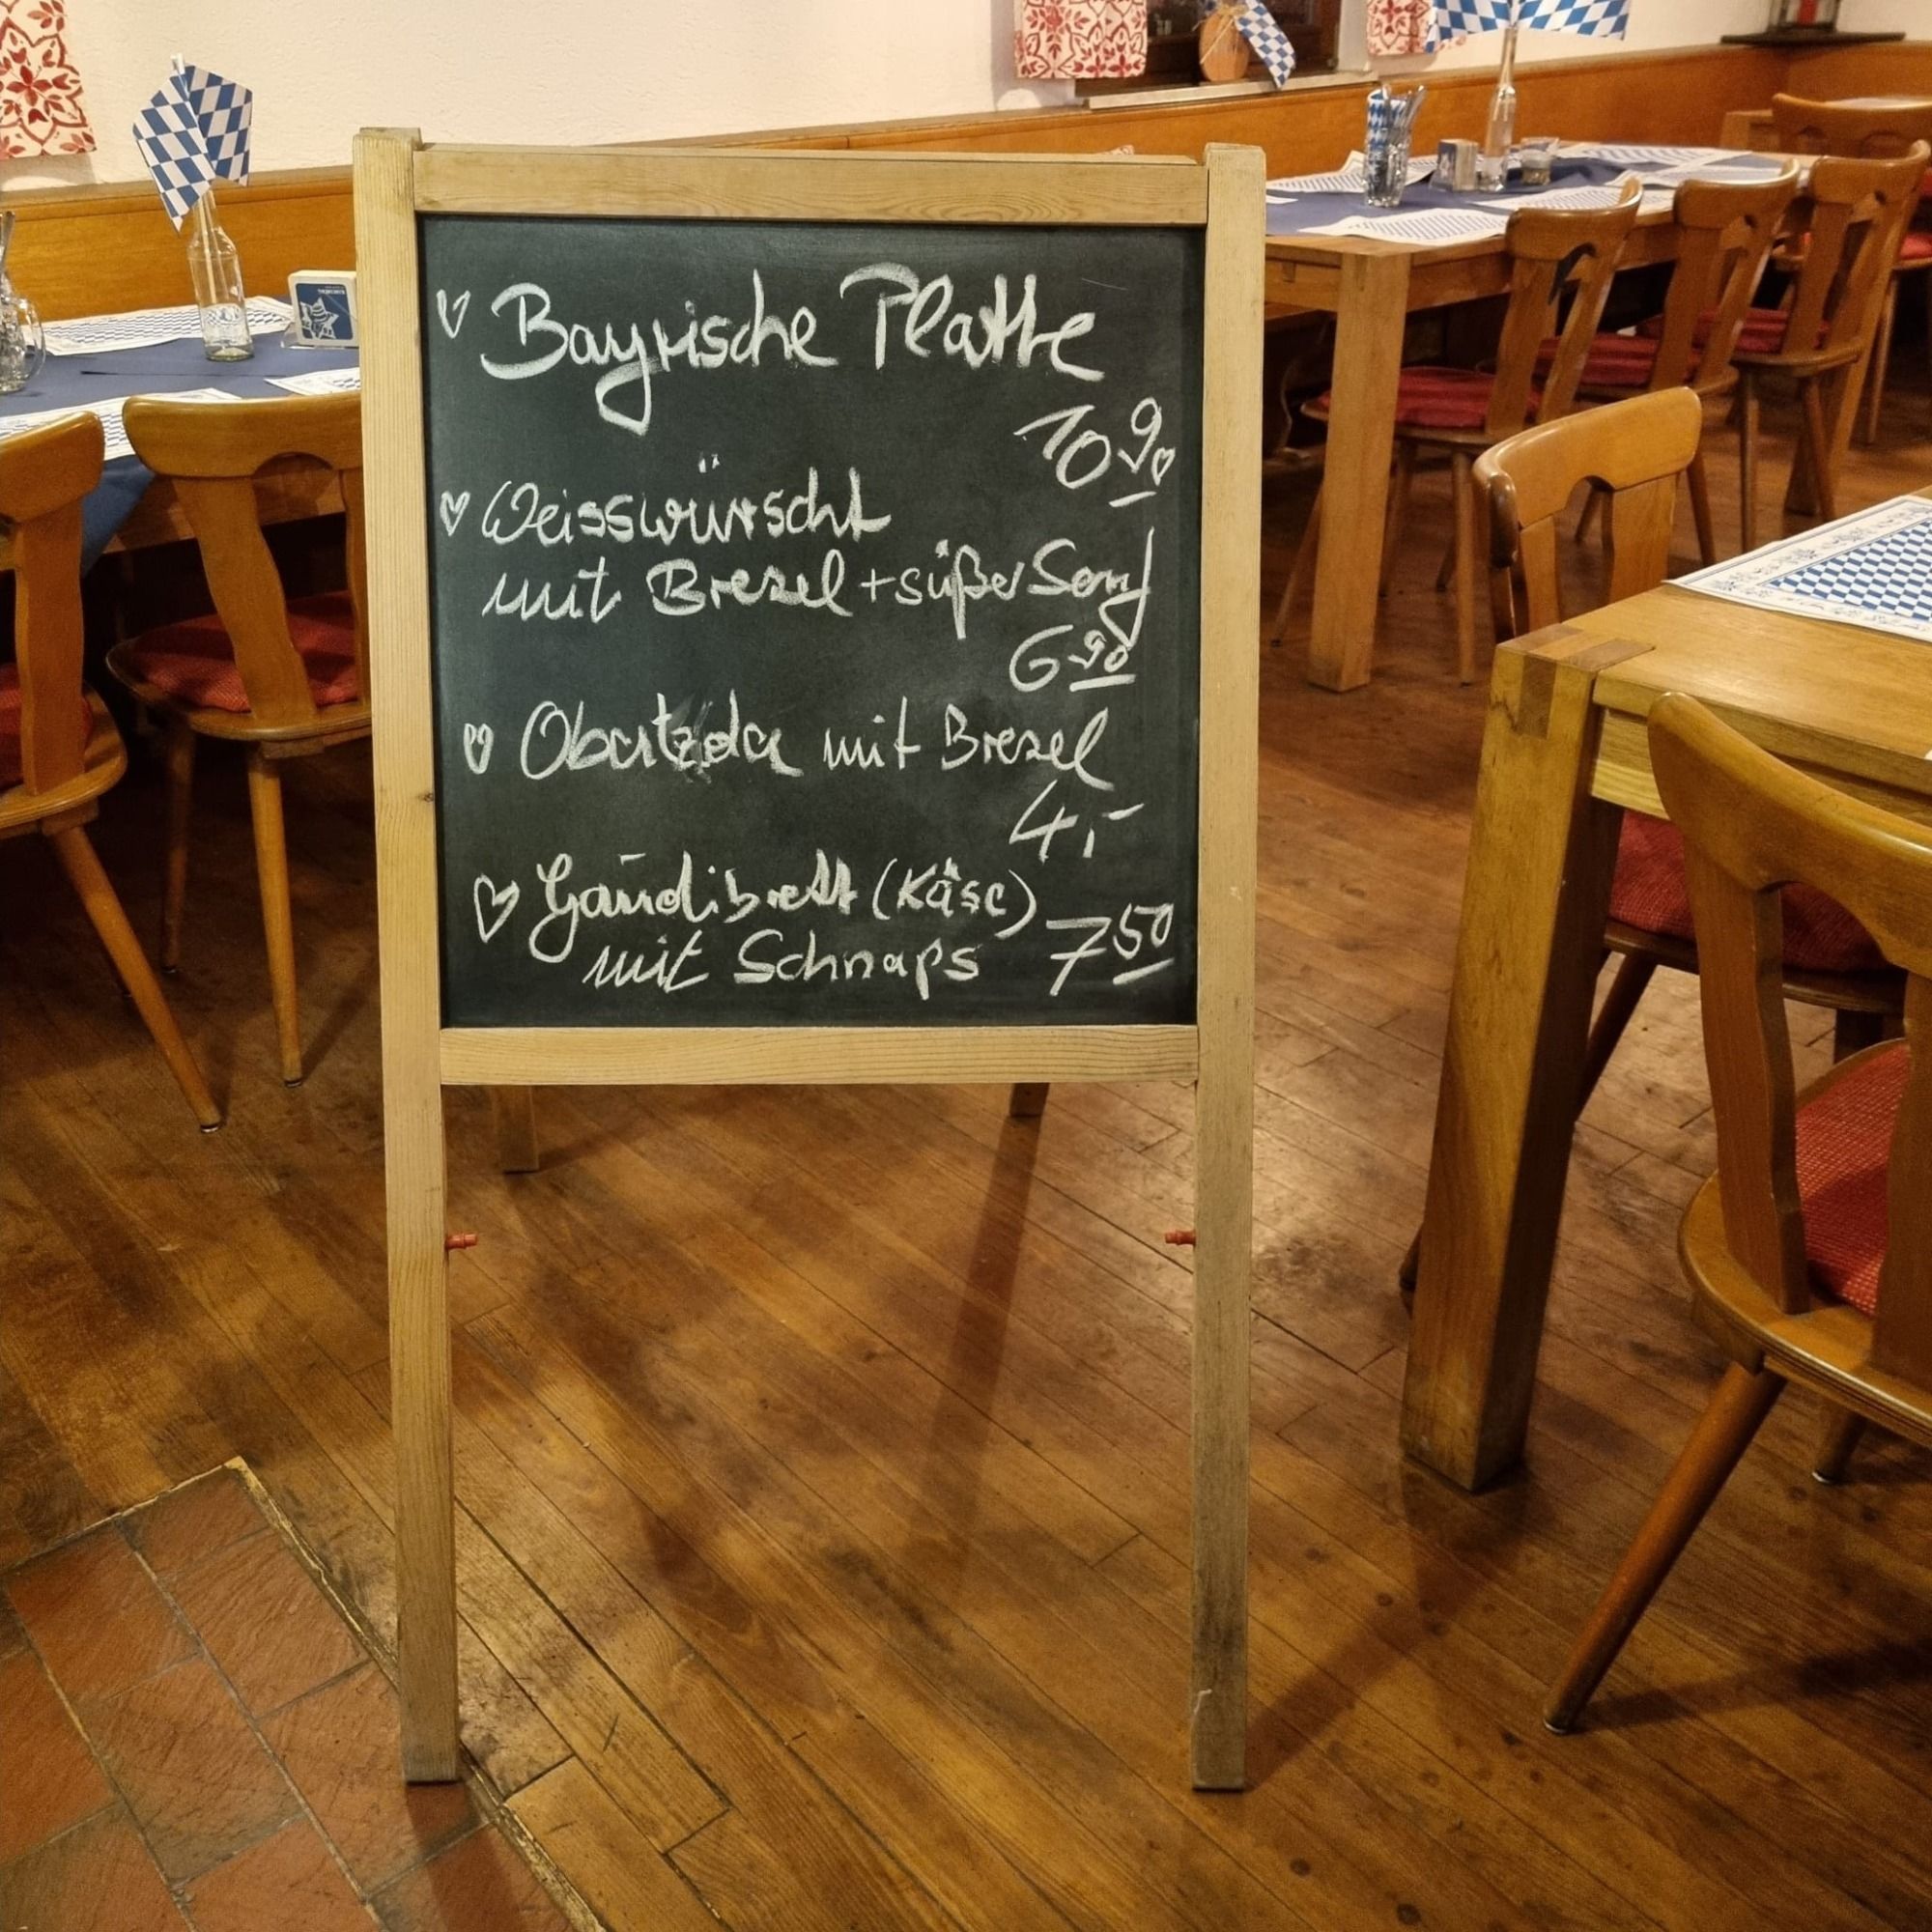 Bayrische Platte
10,90
Weisswürscht
mit Brezel + süßer Senf
6 90
Obatzda mit Brezel
4,-
Gaudibrett (Käse)
mit Schnaps 7 50